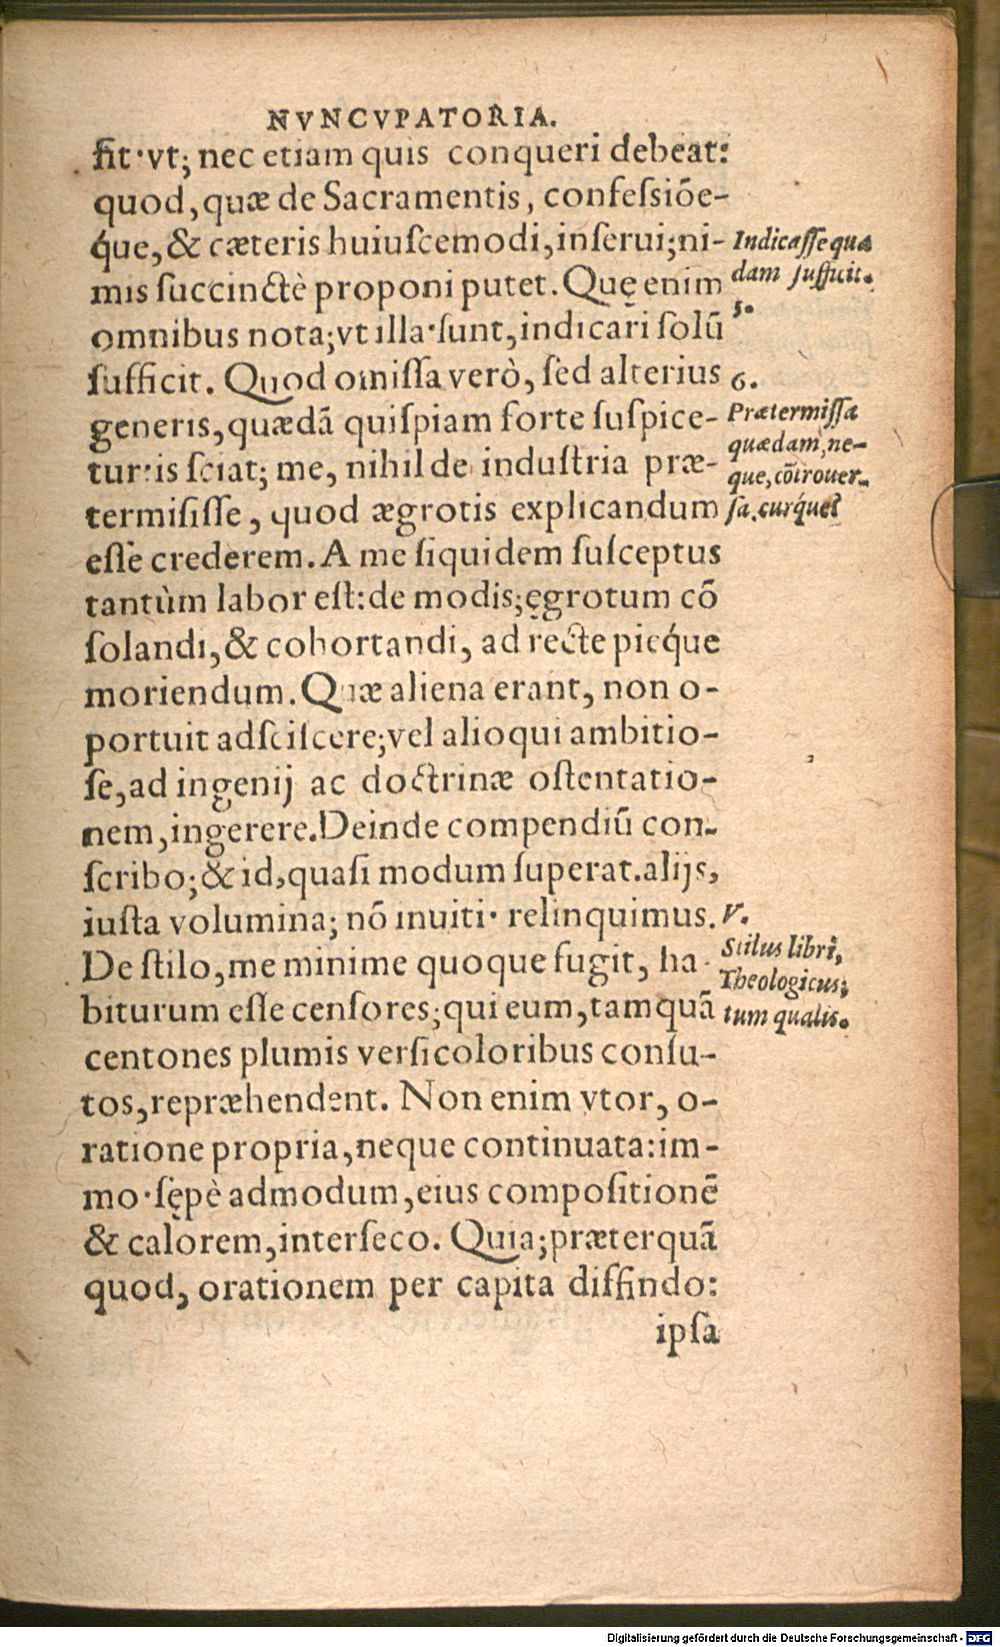 NVNCVPATORIA.
fit·vt; nec etiam quis conqueri debeat:
quod, quæ de Sacramentis, confeſsiõe-
q́ue, & cæteris huiuſcemodi, inſerui; ni-
mis ſuccinctè proponi putet. Quę enim
omnibus nota; vt illa·ſunt, indicari ſolũ
ſufficit. Quod omiſſa verò, ſed alterius
generis, quædã quiſpiam forte ſuſpice-
tur: is ſciat; me, nihil de induſtria præ-
termiſiſſe, quod ægrotis explicandum
eſſe crederem. A me ſiquidem ſuſceptus
tantùm labor eſt: de modis; ęgrotum cõ
ſolandi, & cohortandi, ad recte pieq́ue
moriendum. Quæ aliena erant, non o-
portuit adſciſcere; vel alioqui ambitio-
ſe, ad ingenij ac doctrinæ oſtentatio-
nem, ingerere. Deinde compendiũ con-
ſcribo; & id, quaſi modum ſuperat. alijs,
iuſta volumina; nõ inuiti· relinquimus.
De ſtilo, me minime quoque fugit, ha-
biturum eſſe cenſores; qui eum, tamquã
centones plumis verſicoloribus conſu-
tos, repræhendent. Non enim vtor, o-
ratione propria, neque continuata: im-
mo·ſępè admodum, eius compoſitionẽ
& calorem, interſeco. Quia; præterquã
quod, orationem per capita diffindo:
ipſa
Indicaſſe quæ
dam ſuffuit.
5.
6.
Prætermiſſa
quædam, ne-
que, cõtrouer-
ſa. curq́uei
V.
Stilus libri,
Theologicus;
tum qualis.
Digitalisierung gefördert durch die Deutsche Forschungsgemeinschaft - DFG